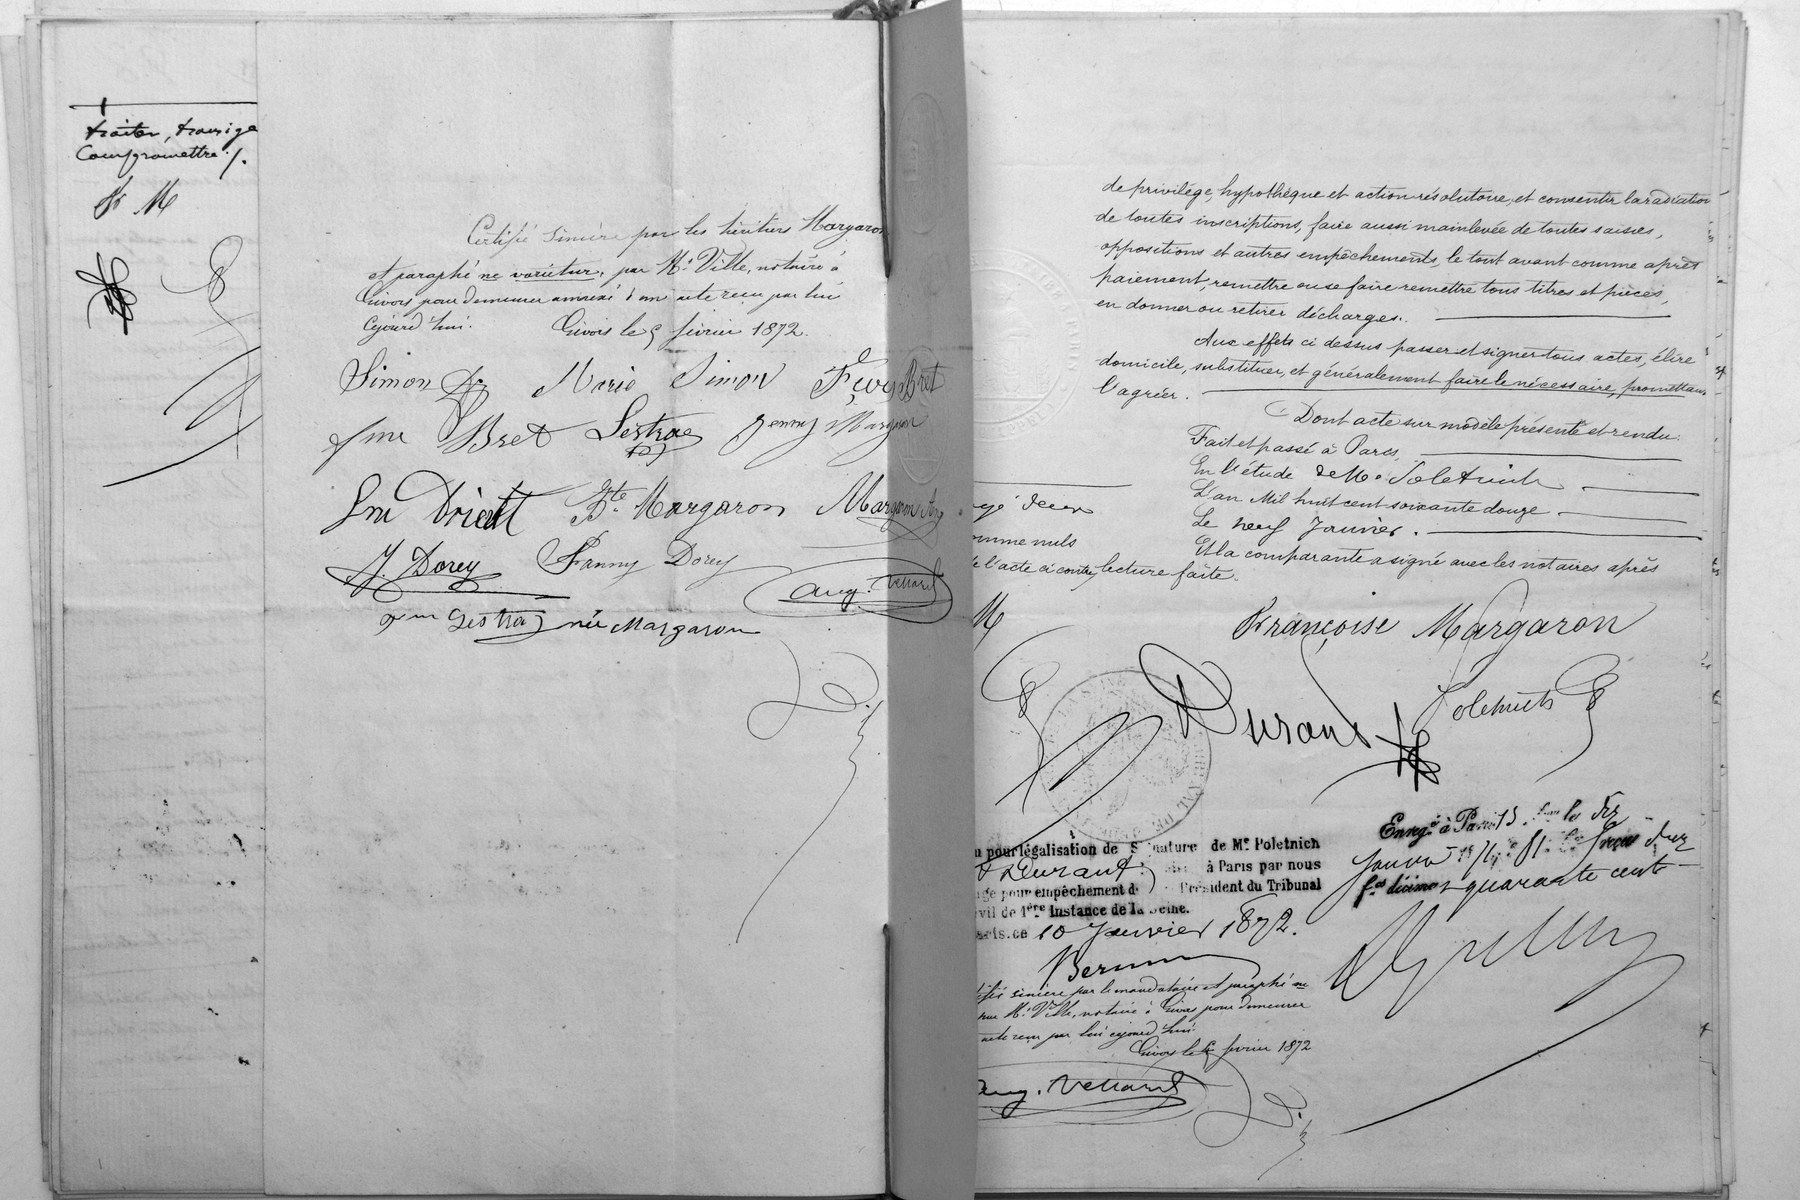 traiter, transige
Compromettre ./.
F M
Certifié sincère par les héritiers Margaron
et paraphé ne varietur, par Me Ville, notaire à
Givors pour demeurer annexé à un acte reçu par lui
cejourd'hui. Givors le 5 février 1872.
Simon Marie Simon Bret
fme Bret Lestra Jenny Margaron
Bte Margaron Margaron
J. Dorey Fanny Dorey
Aug. Vellard
fme Lestra née Margaron
de privilége, hypothèque et action résolutoire, et consentir la radiation
de toutes inscriptions, faire aussi mainlevée de toutes saisies,
oppositions et autres empêchements, le tout avant comme après
paiement, remettre ou se faire remettre tous titres et pièces,
en donner ou retirer décharges.
Aux effets ci dessus passer et signer tous actes, élire
domicile, substituer, et généralement faire le nécessaire, promettant
l'agréer.
Dont acte sur modèle présenté et rendu.
Fait et passé à Paris,
En l'étude de Me Poletnich
L'an Mil huit cent soixante douze
Le neuf Janvier.
Et la comparante a signé avec les notaires après
omme nuls
e l'acte ci contre, lecture faite.
M
Françoise Margaron
Durant Poletnich
pour légalisation de Signature de Me Poletnich
& Durant à Paris par nous
ge pour empêchement de Président du Tribunal
vil de 1ère instance de la Seine.
aris, ce 10 Janvier 1872.
Enregé à Paris les dix
Janvier
fcs décimes quarante cent
ifié sincère par le mandataire et paraphé ne
par Me Ville, notaire à Givors pour demeurer
acte reçu par lui cejourd'hui.
Givors le 5 février 1872
Aug. Vellard